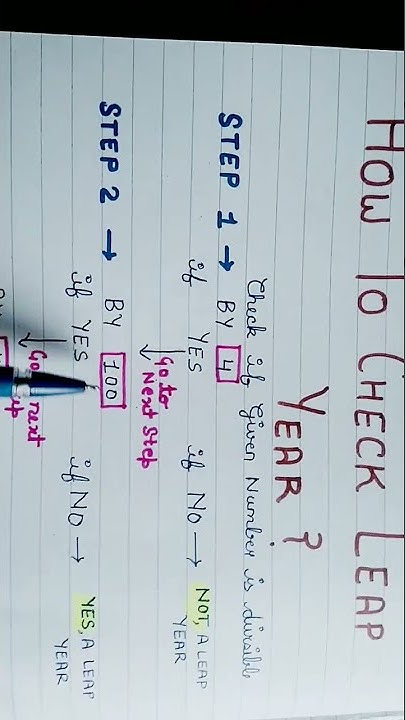 HOW TO CHECK LEAP
YEAR ?
Check if Given Number is divisible
STEP 1 → BY 4
if YES if NO → NOT, A LEAP
YEAR
↓ Go to
Next Step
STEP 2 → BY 100
if YES if NO → YES, A LEAP
YEAR
↓ Go next